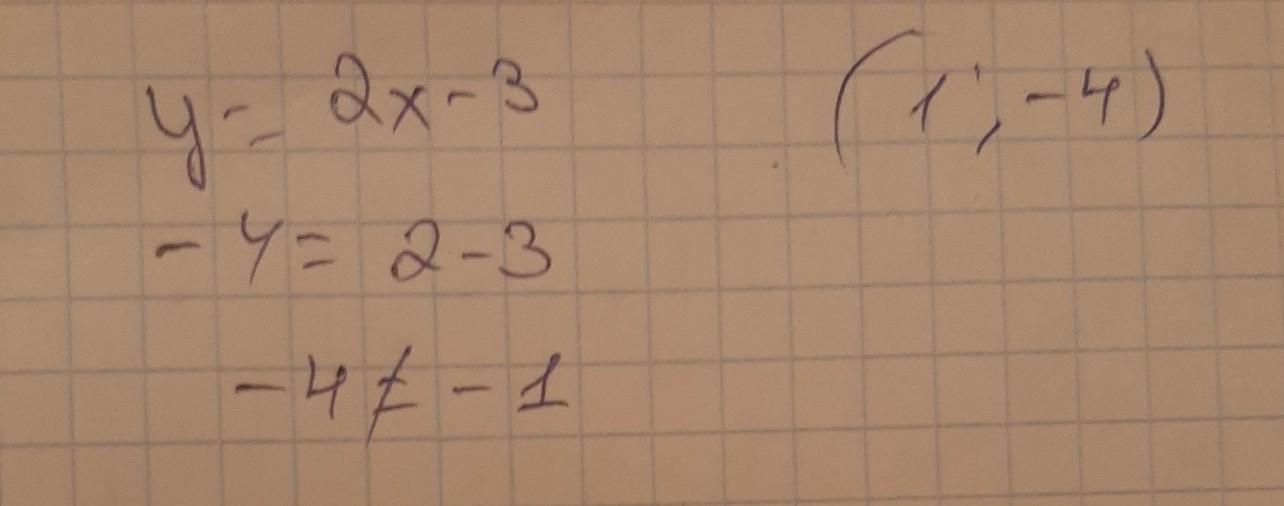 y = 2x - 3 (1 ; -4)
-4 = 2 - 3
-4 ≠ -1